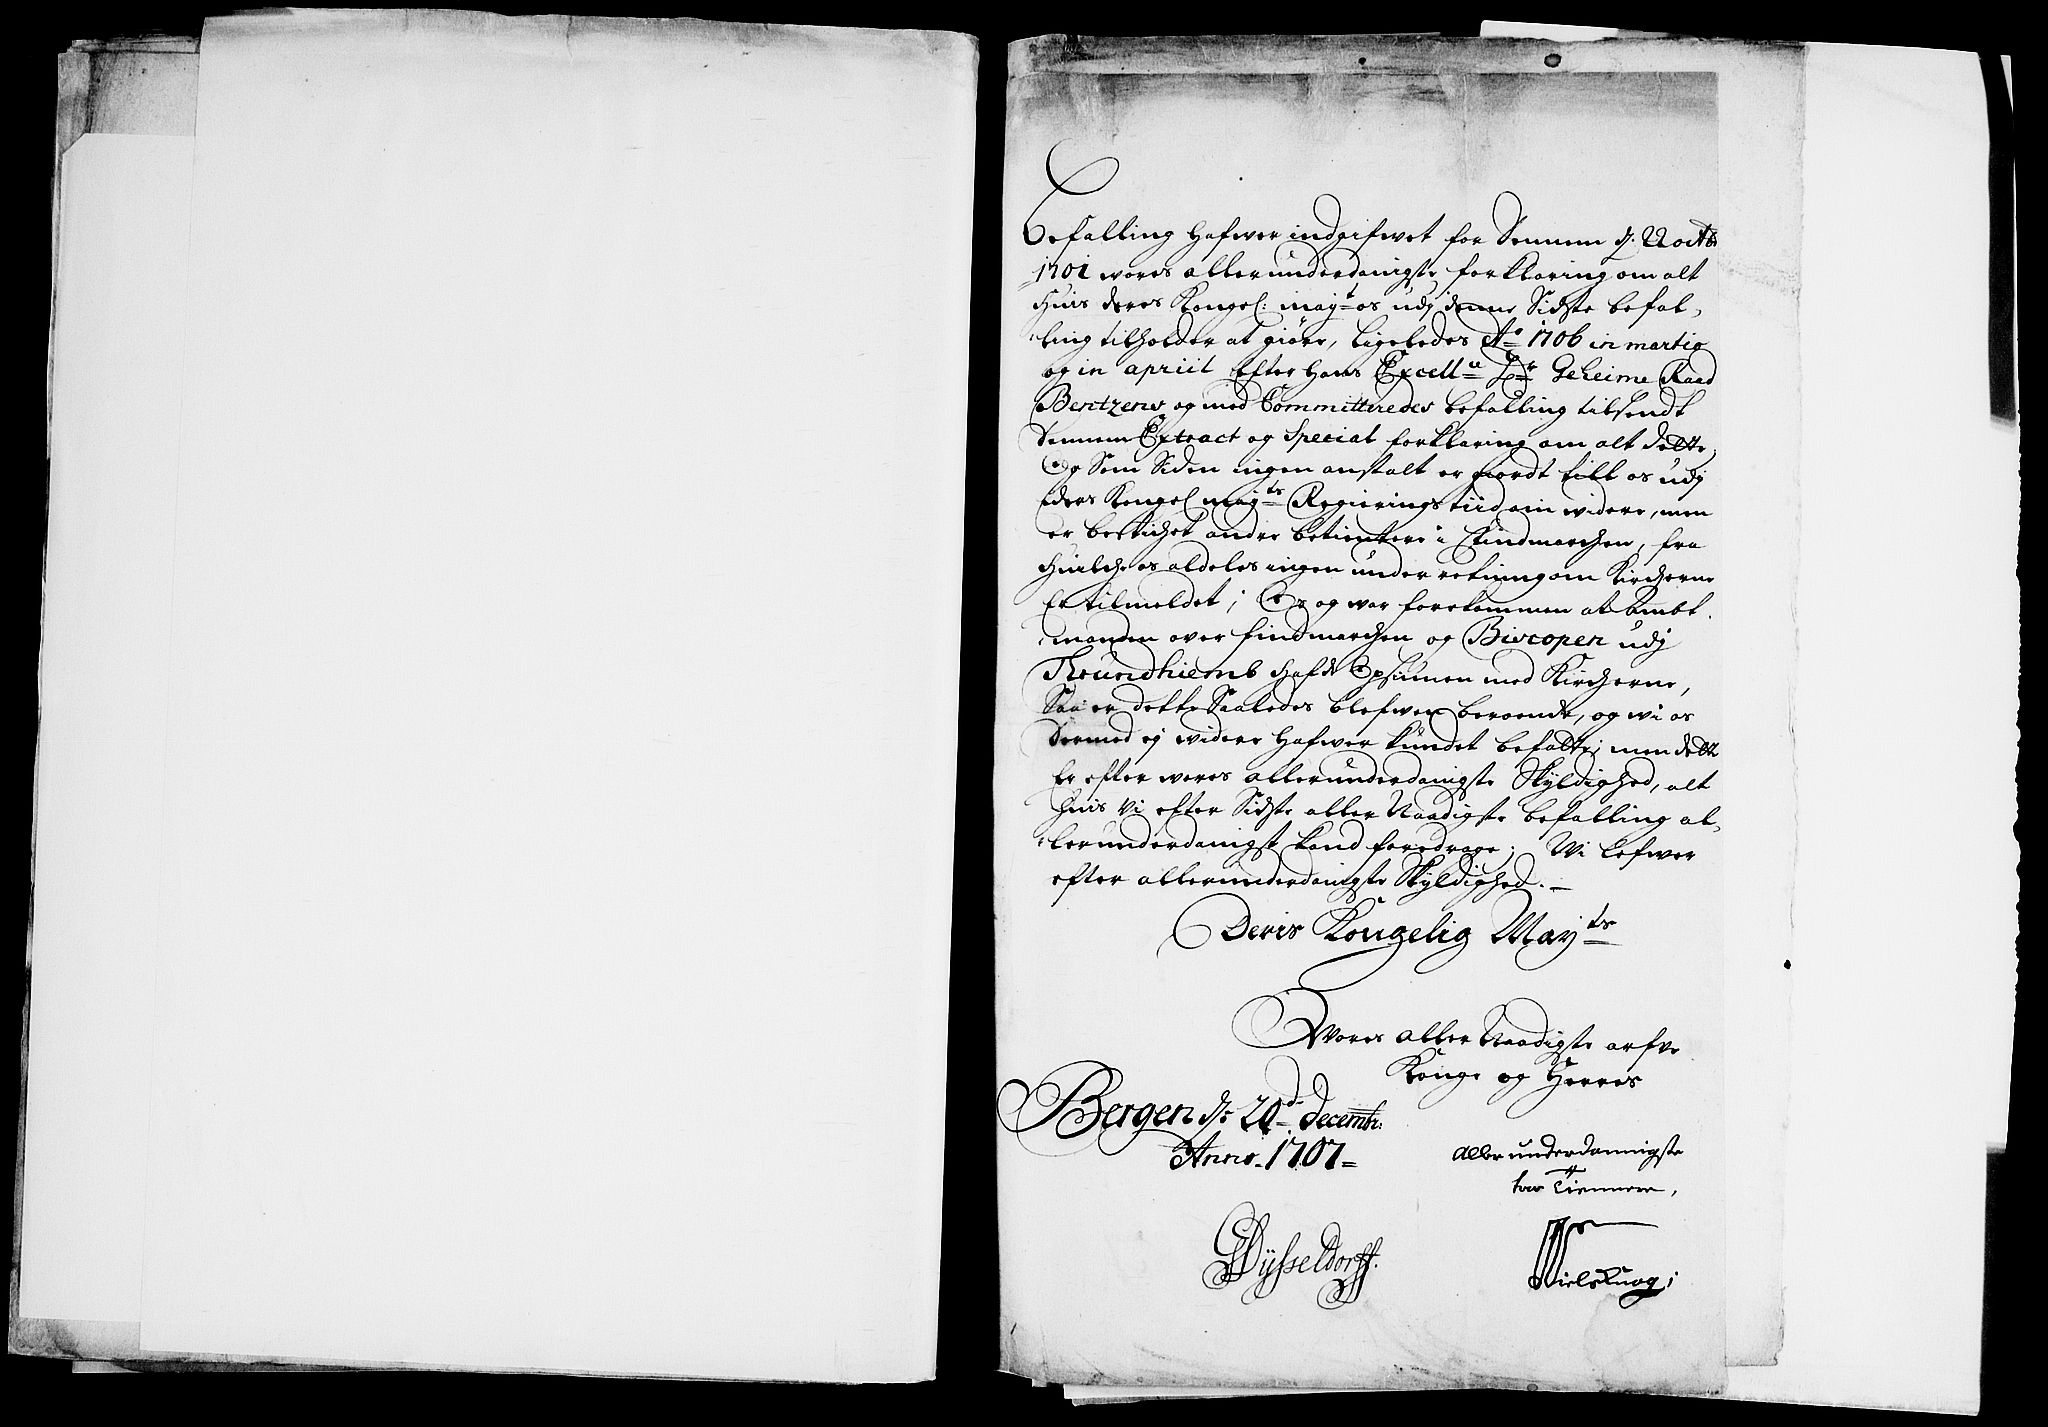 befalling hafwer indgifwet for Dennem d. 22 octb:
1701 wores allerunderdanigste forklaring om alt
huis deres Kongel: may.t os udj denne Sidste befal,
ling tilholder at giøre, ligeledes A.o 1706 in martio
og in apriit Efter Hans Excell.n H.r Geheime Raad
Bentzens og med Committeredes befalling tilsendt
Dennem Extract og Special forklaring om alt dette,
Og Som Siden ingen anstalt er giordt till os udj
ders Kongel may.ts Regierings tiid om widere, men
er beskichet andre betientere i Findmarchen, fra
huilche os aldeles ingen underretning om Kircherne
Er tilmeldet; Os og war forekommen at ambt
manden over findmarchen og Biscopen udj
Trundhiemb hafde Opsiunen med Kircherne,
Saa er dette Saaledes blefwen beroende, og wi os
dermed ej widere hafwer kundet befatte; men dette
Er efter wores allerunderdanigste Skyldighed, alt
huis Vi efter Sidste aller Naadigste befalling al,
lerunderdanigst kand foredrage; Wi Lefwer
efter allerunderdanigste Skyldighed.
Deris Kongelig May.ts
Wores aller Naadigste arfve
Konge og Herres
Bergen d: 20.d Decembr:
Anno. 1707
Allerunderdannigste
troe Tiennere,
Dÿsseldorff.
Niels Knag;